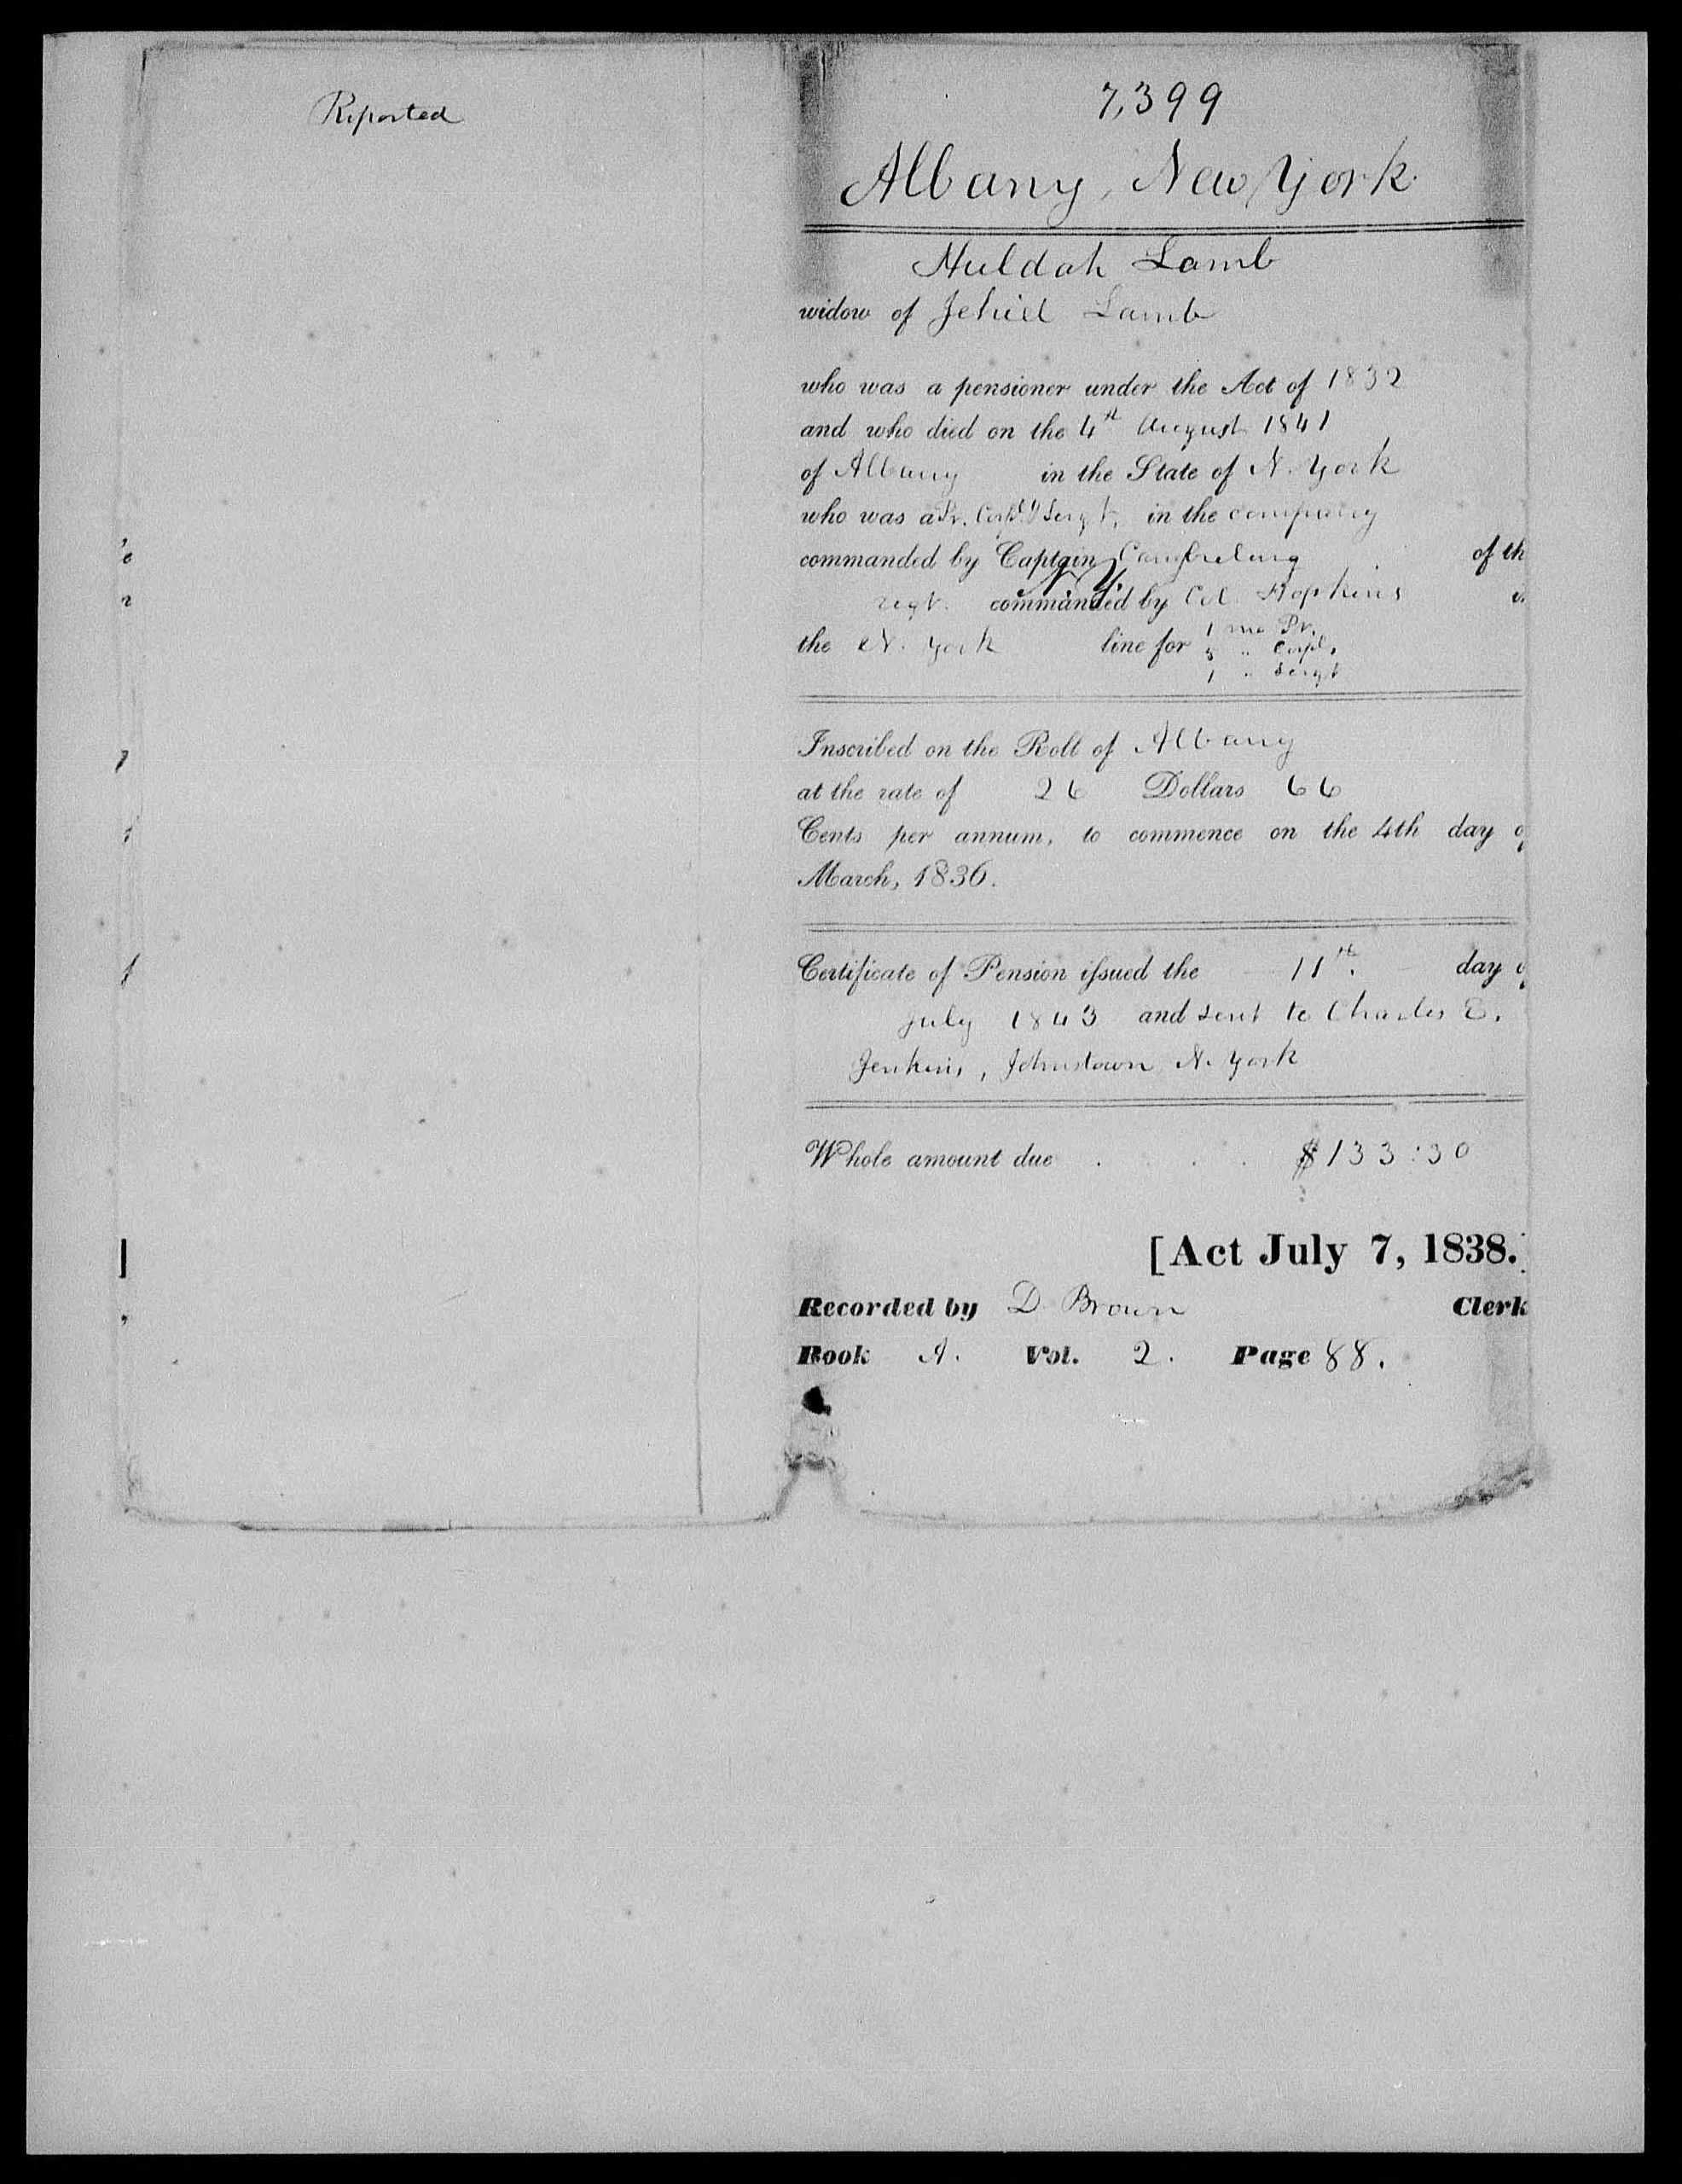 Reported
7,399
Albany, New York
Huldah Lamb
widow of Jehiel Lamb
who was a pensioner under the Act of 1832
and who died on the 4th August 1841
of Albany in the State of N. York
who was a Pr. Corpl. & Sergt. in the company
commanded by Captain of th
N.Y.
regt. commanded by Col. Hopkins
the N. York line for 1 mo Pr.
" Corpl.
1 " Sergt
Inscribed on the Roll of Albany
at the rate of 26 Dollars 66
Cents per annum, to commence on the 4th day o
March, 1836.
Certificate of Pension issued the 11th. day o
July 1843 and sent to Charles E.
Jenkins, Johnstown N. York
Whole amount due . . . $133:30
[Act July 7, 1838.]
Recorded by D Brown Clerk
Book A. Vol. 2. Page 88.